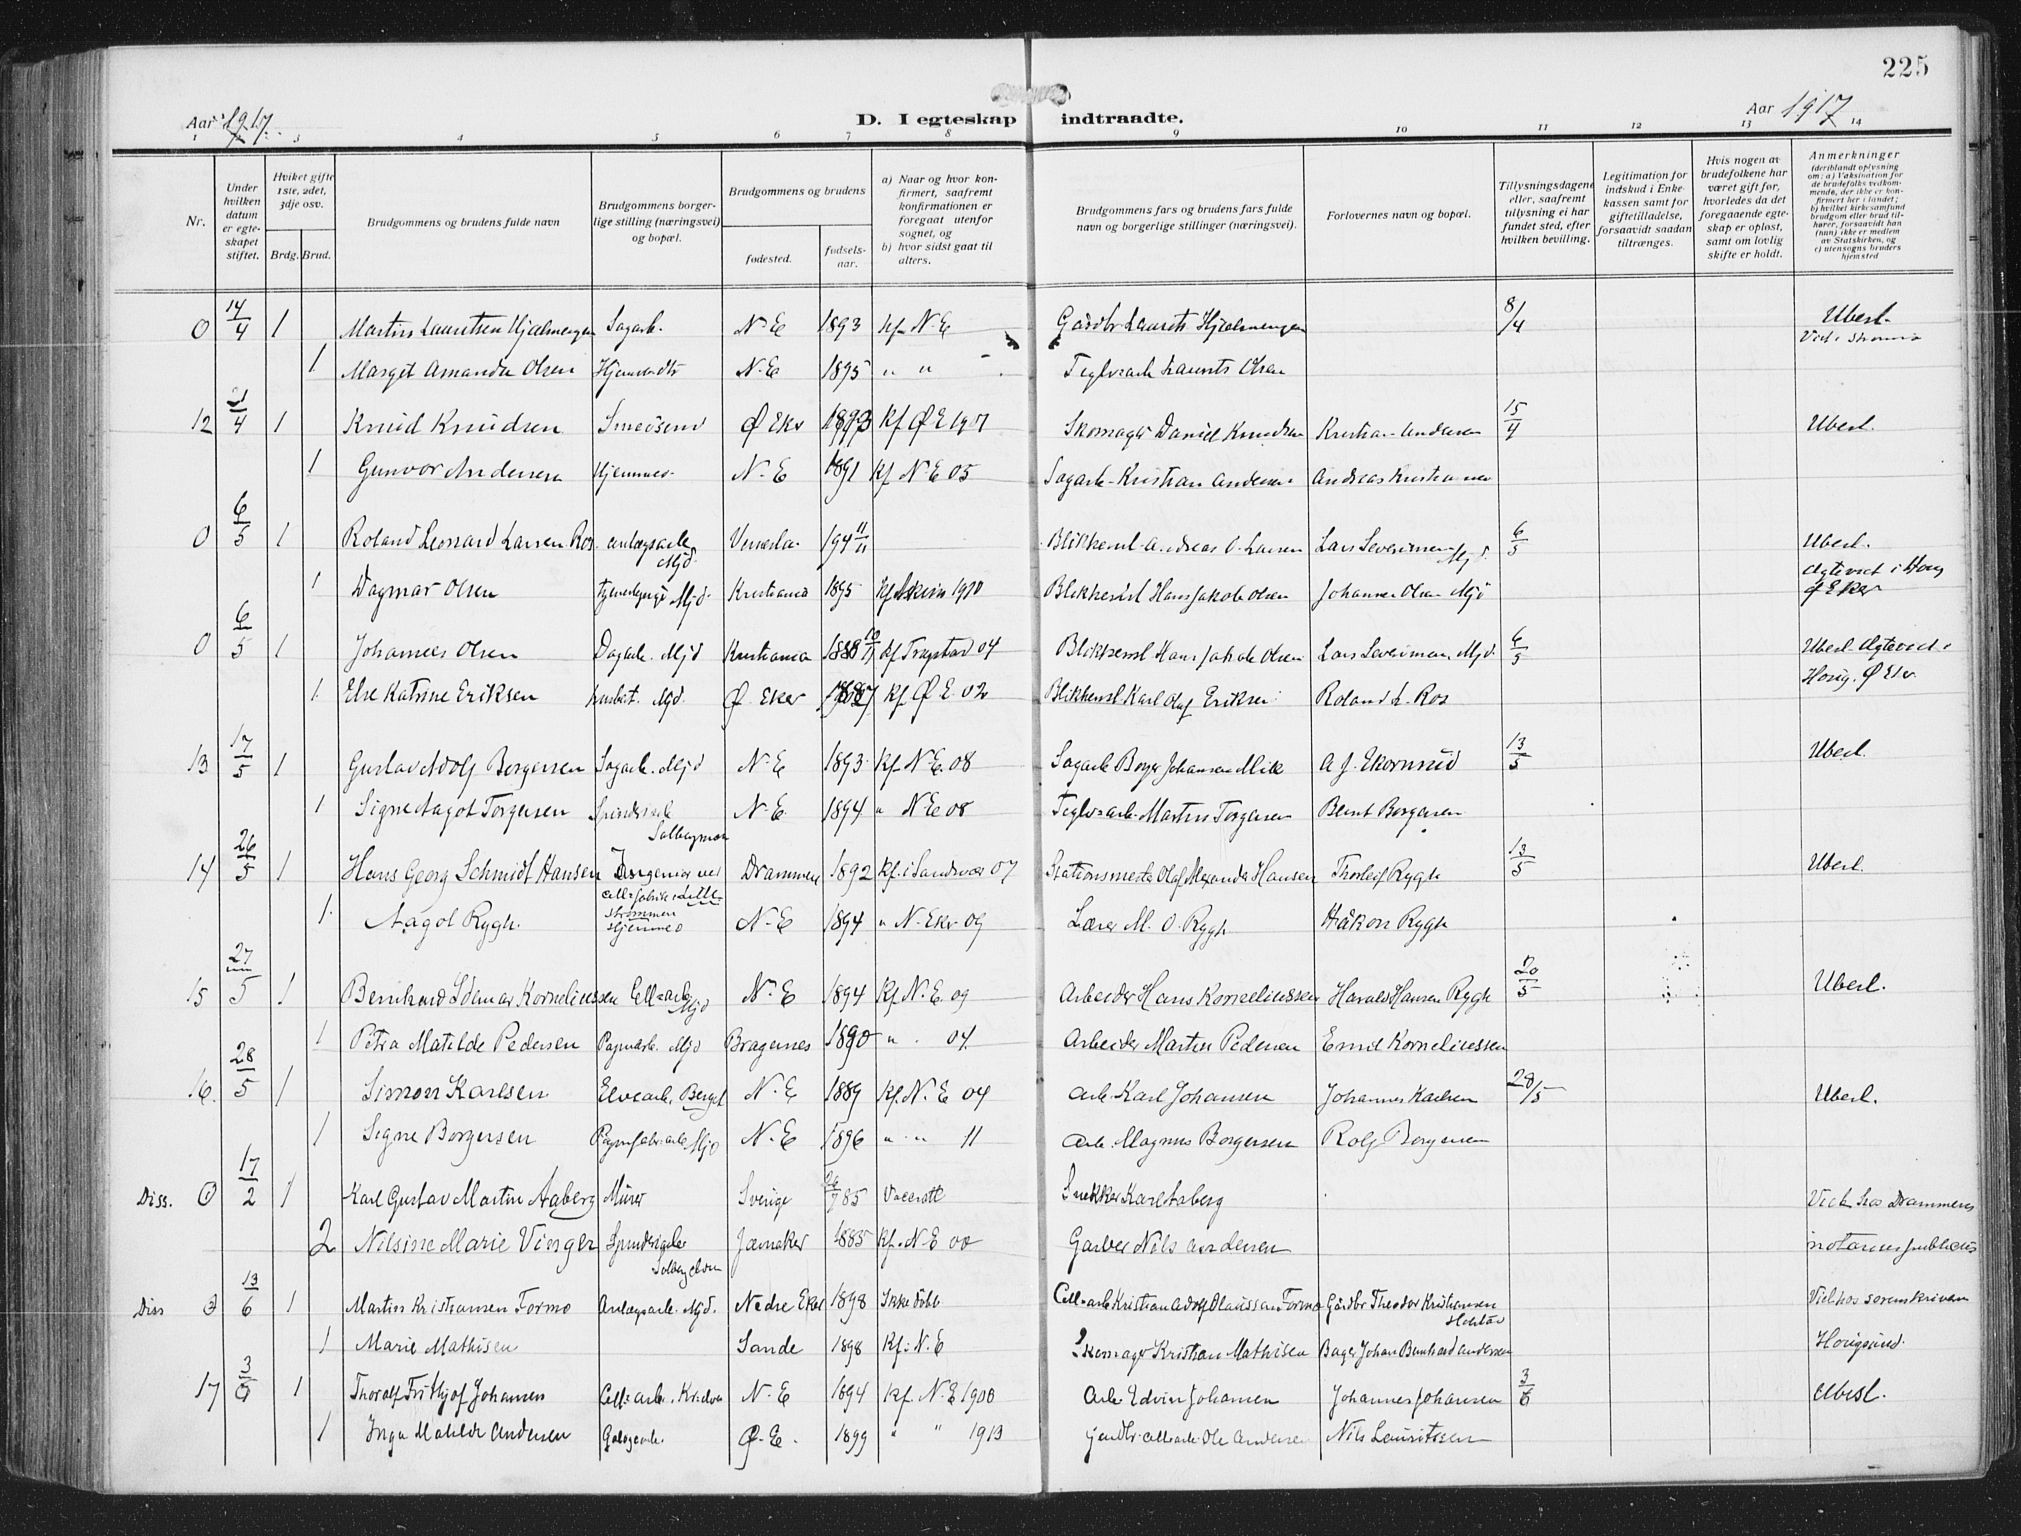 225
Aar 1917.
D. I egteskap indtraadte.
Aar 1917
1 3 4 5 6 7 8 9 10 11 12 13 14
Nr.
Under hvilken datum er egteskapet stiftet.
Hviket gifte 1ste, 2det, 3dje osv.
Brdg. Brud.
Brudgommens og brudens fulde navn
Brudgommens borgerlige stilling (næringsvei) og bopæl.
Brudgommens og brudens
fødested.
fødselsaar.
a) Naar og hvor konfirmert, saafremt konfirmationen er foregaat utenfor sognet, og
b) hvor sidst gaat til alters.
Brudgommens fars og brudens fars fulde navn og borgerlige stillinger (næringsvei).
Forlovernes navn og bopæl.
Tillysningsdagene eller, saafremt tillysning ei har fundet sted, efter hvilken bevilling.
Legitimation for indskud i Enkekassen samt for giftetilladelse, forsaavidt saadan tiltrænges.
Hvis nogen av brudefolkene har været gift før, hvorledes da det foregaaende egteskap er opløst, samt om lovlig skifte er holdt.
Anmerkninger (deriblandt oplysning om: a) Vaksination for de brudefolks vedkommende, der ikke er konfirmert her i landet; b) hvilket kirkesamfund brudgom eller brud tilhører, forsaavidt han (hun) ikke er medlem av Statskirken, og c) utensogns bruders hjemsted
0 14/4 1 Martin Lauritsen Hjalmengen Sagarb. N-E 1893 kf. N-E Gaardbr Laurits Hjalmengen 8/4 Uberl.
1 Margit Amanda Olsen N-E 1895 " " Teglv=arb Laurits Olsen
12 21/4 1 Knud Knudsen Ø Eker 1893 kf Ø E 1907 Skomager Daniel Knudsen Kristian Andersen 15/4 Uberl.
1 Gunvor Andersen Hjemme N-E 1891 kf N-E 05 Sagarb- Kristian Andersen Andreas Kristiansen
0 6/5 1 Roland Leonard Larsen Ros. anlægsarb Mjd. Vennesla 194 11/11 Blikkensl. Andreas O. Larsen Lars Severinsen Mjd. 6/5 Uberl.
1 Dagmar Olsen Mjd. Kristiania 1895 kf. Askim 1910 Blikkensl Hans Jakob Olsen Johannes Olsen Mjd Agtevíet i Houg Ø Eker
0 6/5 1 Johannes Olsen Dagarb. Mjd Kristiania 1888 10/11 kf Trøgstad 04 Blikkensl Hans Jakob Olsen Lars Severinsen Mjd. 6/5 Uberl.
1. Else Katrine Eriksen husbest. Mjd. Ø. Eker 1887 kf. Ø E. 02 Blikkensl Karl Olaf Eriksen Roland L. Ros
13 17/5 1 Gustav Adolf Borgersen Sagarb. Mjd N-E 1893. kf. N-E. 08 Sagarb Borger Johansen Mile A J. Ekornrud 13/5 Uberl.
1 Signe Aagot Torgersen N-E. 1894 " N-E 08 Teglv=arb. Martin Torgersen Bernt Borgersen
14 26/5 1 Hans Georg Schmidt Hansen Ingeniør ved cell=fabrik i Lillestrømmen Drammen 1892 kf. i Sandsvær 07 Stationsmester Olaf Alexander Hansen Thorleif Rygh 13/5 Uberl.
1. Aagot Rygh. Hjemme N-E 1894 " N-Eker 09 Lærer M. O. Rygh Håkon Rygh
15 27/5 1 Bernhard Idemar Korneliussen Cell=arb Mjd N-E 1894 kf. N-E. 09 Arbeider Hans Korneliussen Harald Hansen Rygh 20/5 Uberl.
1 Petra Matilde Pedersen Papirarb. Mjd Bragernes 1890 " . 04. Arbeider Martin Pedersen Emil Korneliussen
16. 28/5 1 Simon Karlsen Elvearb. Berget N-E 1889 kf. N-E 04 Arb. Karl Johansen Johannes Karlsen 28/5 Uberl.
1 Signe Borgersen Papirfabr.arb. Mjd N-E 1896 " " 11 Arb. Magnus Borgersen Rolf Borgersen
Diss. 0 17/2 1 Karl Gustav Martin Aaberg Murer Sverige 26/7 85 Snekker Karl Aaberg Viet hos Drammens
2 Nilsine Marie Vinger Jævnaker 1885 kf. N-E 00 Garver Nils Andersen notarius publicus
Diss 0 13/6 1 Martin Kristiansen Formo Anlægsarb. Mjd. Nedre Eker 1898 Ikke døbt Cell=arb Kristian Adolf Olaussen Formo Gårdbr Theodor Kristiansen Viet hos sorenskriveren
1 Marie Mathisen Sande 1898 kf: N-E Skomager Kristian Mathisen Bager Johan Bernhard Andersen Hougsund.
17 3/6 1 Thoralf Frithjof Johansen Cell=arb. N-E 1894 kf. N.E 1908 Arb Edvin Johansen Johannes Johansen 3/6 Uberl.
1 Inga Matilde Andersen Ø-E. 1899 " " 1913 Ole Andersen Nils Lauritssen